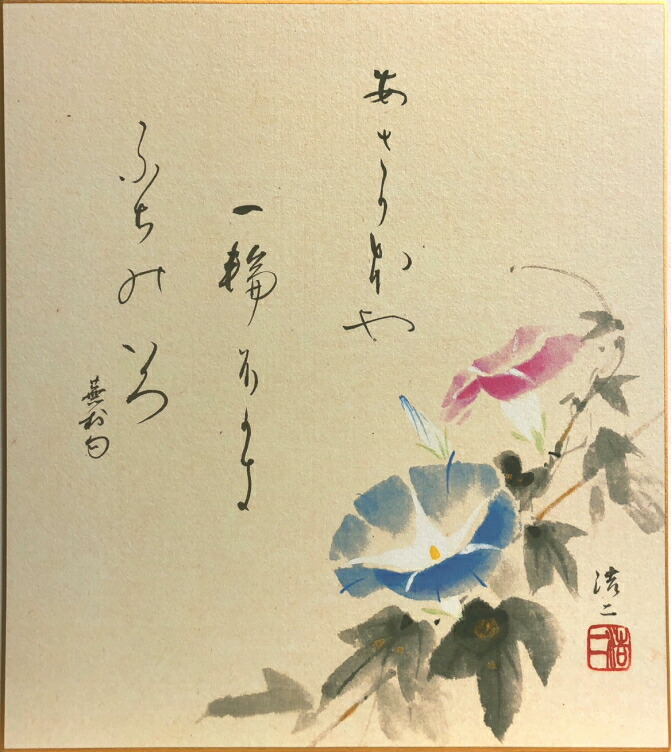 あさかほや
一輪ふかき
ふちのいろ
蕪村句
浩二
浩二